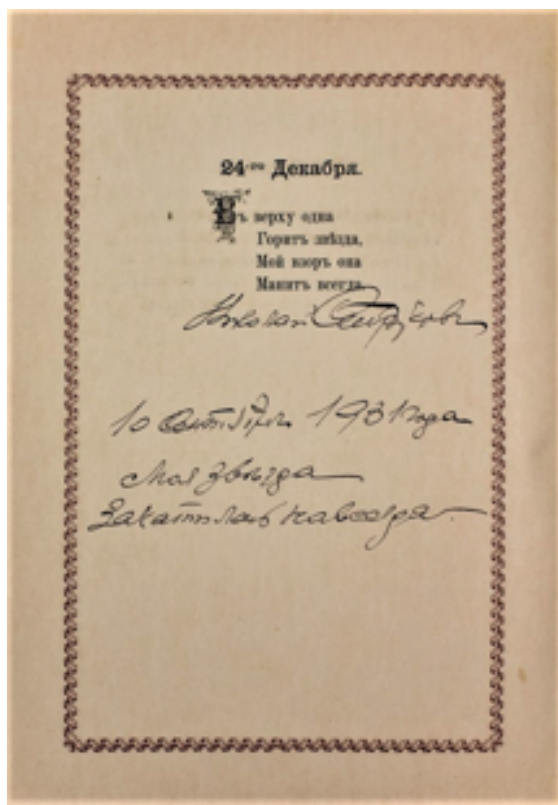 24-го Декабря.
Въ верху одна
Горитъ звѣзда,
Мой взоръ она
Манитъ всегда
Николай
10 Сентября 1931 года
Моя звѣзда
Закатилась навсегда